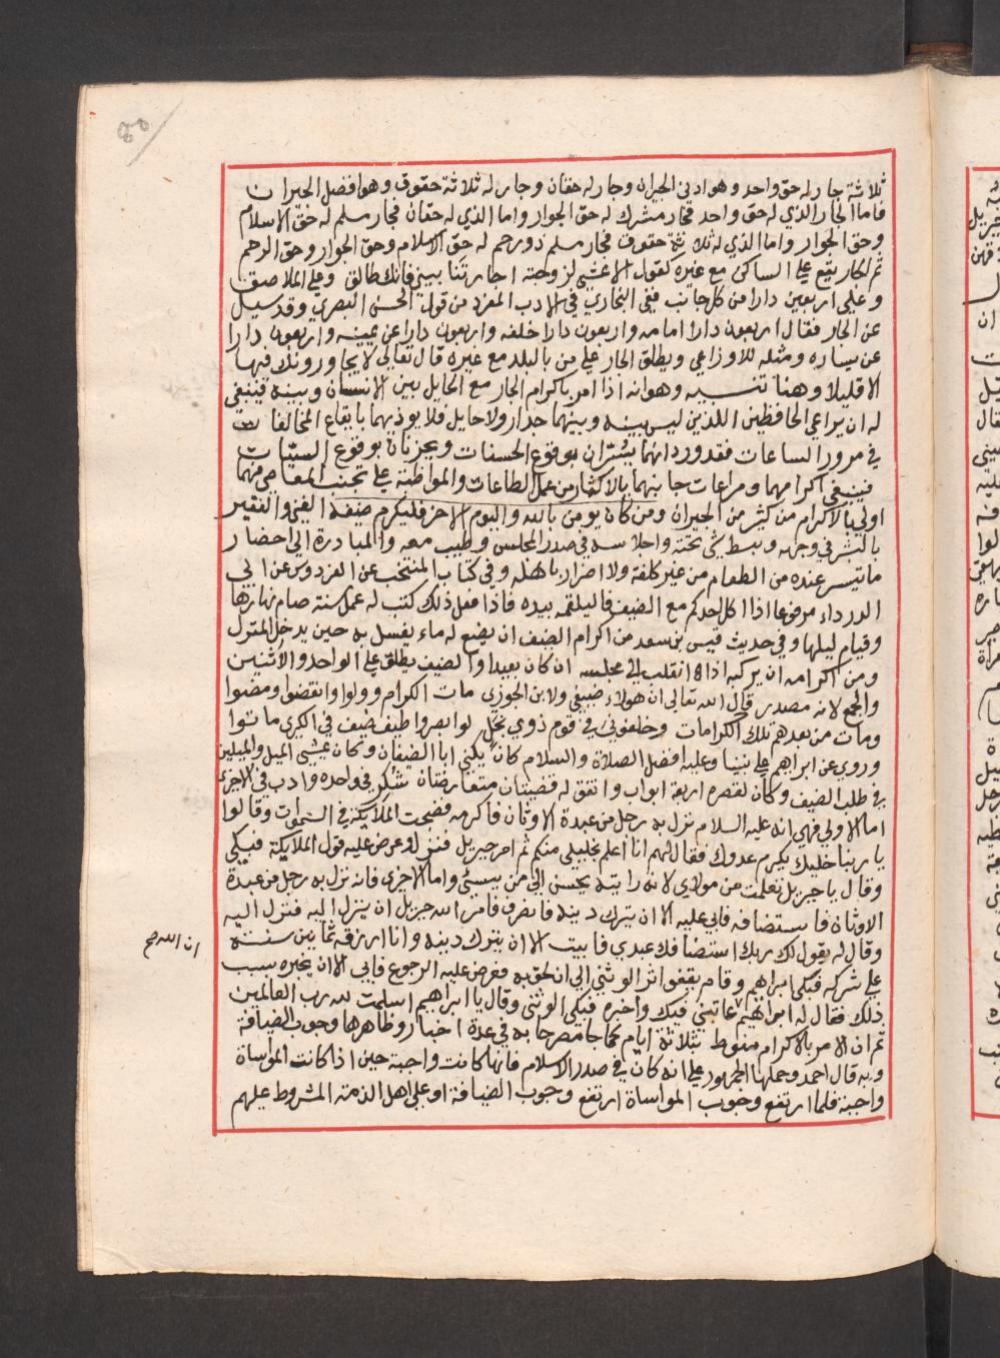 ثلاثة جار له حق واحد وهو ادنى الجيران وجار له حقان وجار له ثلاثة حقوق وهو افضل الجيران
فاما الجار الذي له حق واحد فجار مشرك له حق الجوار واما الذي له حقان فجار مسلم له حق الاسلام
وحق الجوار واما الذي له ثلاثة حقوق فجار مسلم ذو رحم له حق الاسلام وحق الجوار وحق الرحم
ثم الجار يقع على الساكن مع غيره كقول الاعشى لزوجته اجارتنا بيني فانك طالق وعلى الملاصق
وعلى اربعين دارا من كل جانب ففي البخاري في الادب المفرد من قول الحسن البصري وقد سيل
عن الجار فقال اربعون دارا امامه واربعون دارا خلفه واربعون دارا عن يمينه واربعون دارا
عن يساره ومثله للاوزاعي ويطلق الجار على من بالبلد مع غيره قال تعالى لا يجاورونك فيها
الا قليلا وهنا تنبيه وهو انه اذا امر باكرام الجار مع الحايل بين الانسان وبينه فينبغي
له ان يراعي الحافظين اللذين ليس بينه وبينهما جدار ولا حايل فلا يوذيهما بايقاع المخالفات
في مرور الساعات فقد ورد انهما يسران بوقوع الحسنات ويحزنان بوقوع السيئات
فينبغي اكرامهما ومراعات جانبهما بالاكثار من عمل الطاعات والمواظبة على تجنب المعاصي فهما
اولى بالاكرام من كثير من الجيران ومن كان يومن بالله واليوم الاخر فليكرم ضيفه الغني والفقير
بالبشر في وجهه وبسط شي تحته واجلاسه في صدر المجلس وطيب معه والمبادرة الى احضار
ما تيسر عنده من الطعام من غير كلفة ولا اضرار باهله وفي كتاب المنتخب عن الفردوس عن ابي
الدرداء مرفوعا اذا اكل احدكم مع الضيف فاليلقمه بيده فاذا فعل ذلك كتب له عمل سنة صام نهارها
وقيام ليلها وفي حديث قيس بن سعد من اكرام الضيف ان يضع له ماء يغسل به حين يدخل المنزل
ومن اكرامه ان يركبه اذا انقلب الى مجلسه ان كان بعيدا والضيف يطلق على الواحد والاثنين
والجمع لانه مصدر قال الله تعالى ان هولاء ضيفي ولابن الجوزي مات الكرام وولوا وانقضوا ومضوا
ومات من بعدهم تلك الكرامات وخلفوني في قوم ذوي بخل لو ابصروا طيف ضيف في الكرى ماتوا
وروي عن ابراهيم على نبينا وعليه افضل الصلاة والسلام كان يكنى ابا الضيفان وكان يمشي الميل والميلين
في طلب الضيف وكان لقصره اربعة ابواب واتفق له قضيتان متعارضتان شكر في واحده وادب في الاخرى
اما الاولى فهي انه عليه السلام نزل به رجل من عبدة الاوثان فاكرمه فضجت الملايكة في السموات وقالوا
يا ربنا خليلك يكرم عدوك فقال لهم انا اعلم بخليلي منكم ثم امر جبريل فنزل وعرض عليه قول الملايكة فبكى
وقال يا جبريل تعلمت من مولاي لانه رايته يحسن الى من يسيئ واما الاخرى فانه نزل به رجل من عبدة
الاوثان فاستضافه فابى عليه الا ان يترك دينه فانصرف فامر الله جبريل ان ينزل اليه فنزل اليه
وقال له يقول لك ربك استضافك عبدي فابيت الا ان يترك دينه وانا ارزقه ثمانين سنة
ان الله صح
على شركه فبكى ابراهيم وقام يقفو اثر الوثني الى ان لحق به فعرض عليه الرجوع فابى الا ان يخبره بسبب
ذلك فقال له ابراهيم عاتبني فيك واخبره فبكى الوثني وقال يا ابراهيم اسلمت لله رب العالمين
ثم ان الامر بالاكرام منوط بثلاثة ايام كما جا مصرحا به في عدة اخبار وظاهرها وجوب الضيافة
وبه قال احمد وحملها الجمهور على انه كان في صدر الاسلام فانها كانت واجبة حين اذ كانت المواساة
واجبة فلما ارتفع وجوب المواساة ارتفع وجوب الضيافة او على اهل الذمة المشروط عليهم